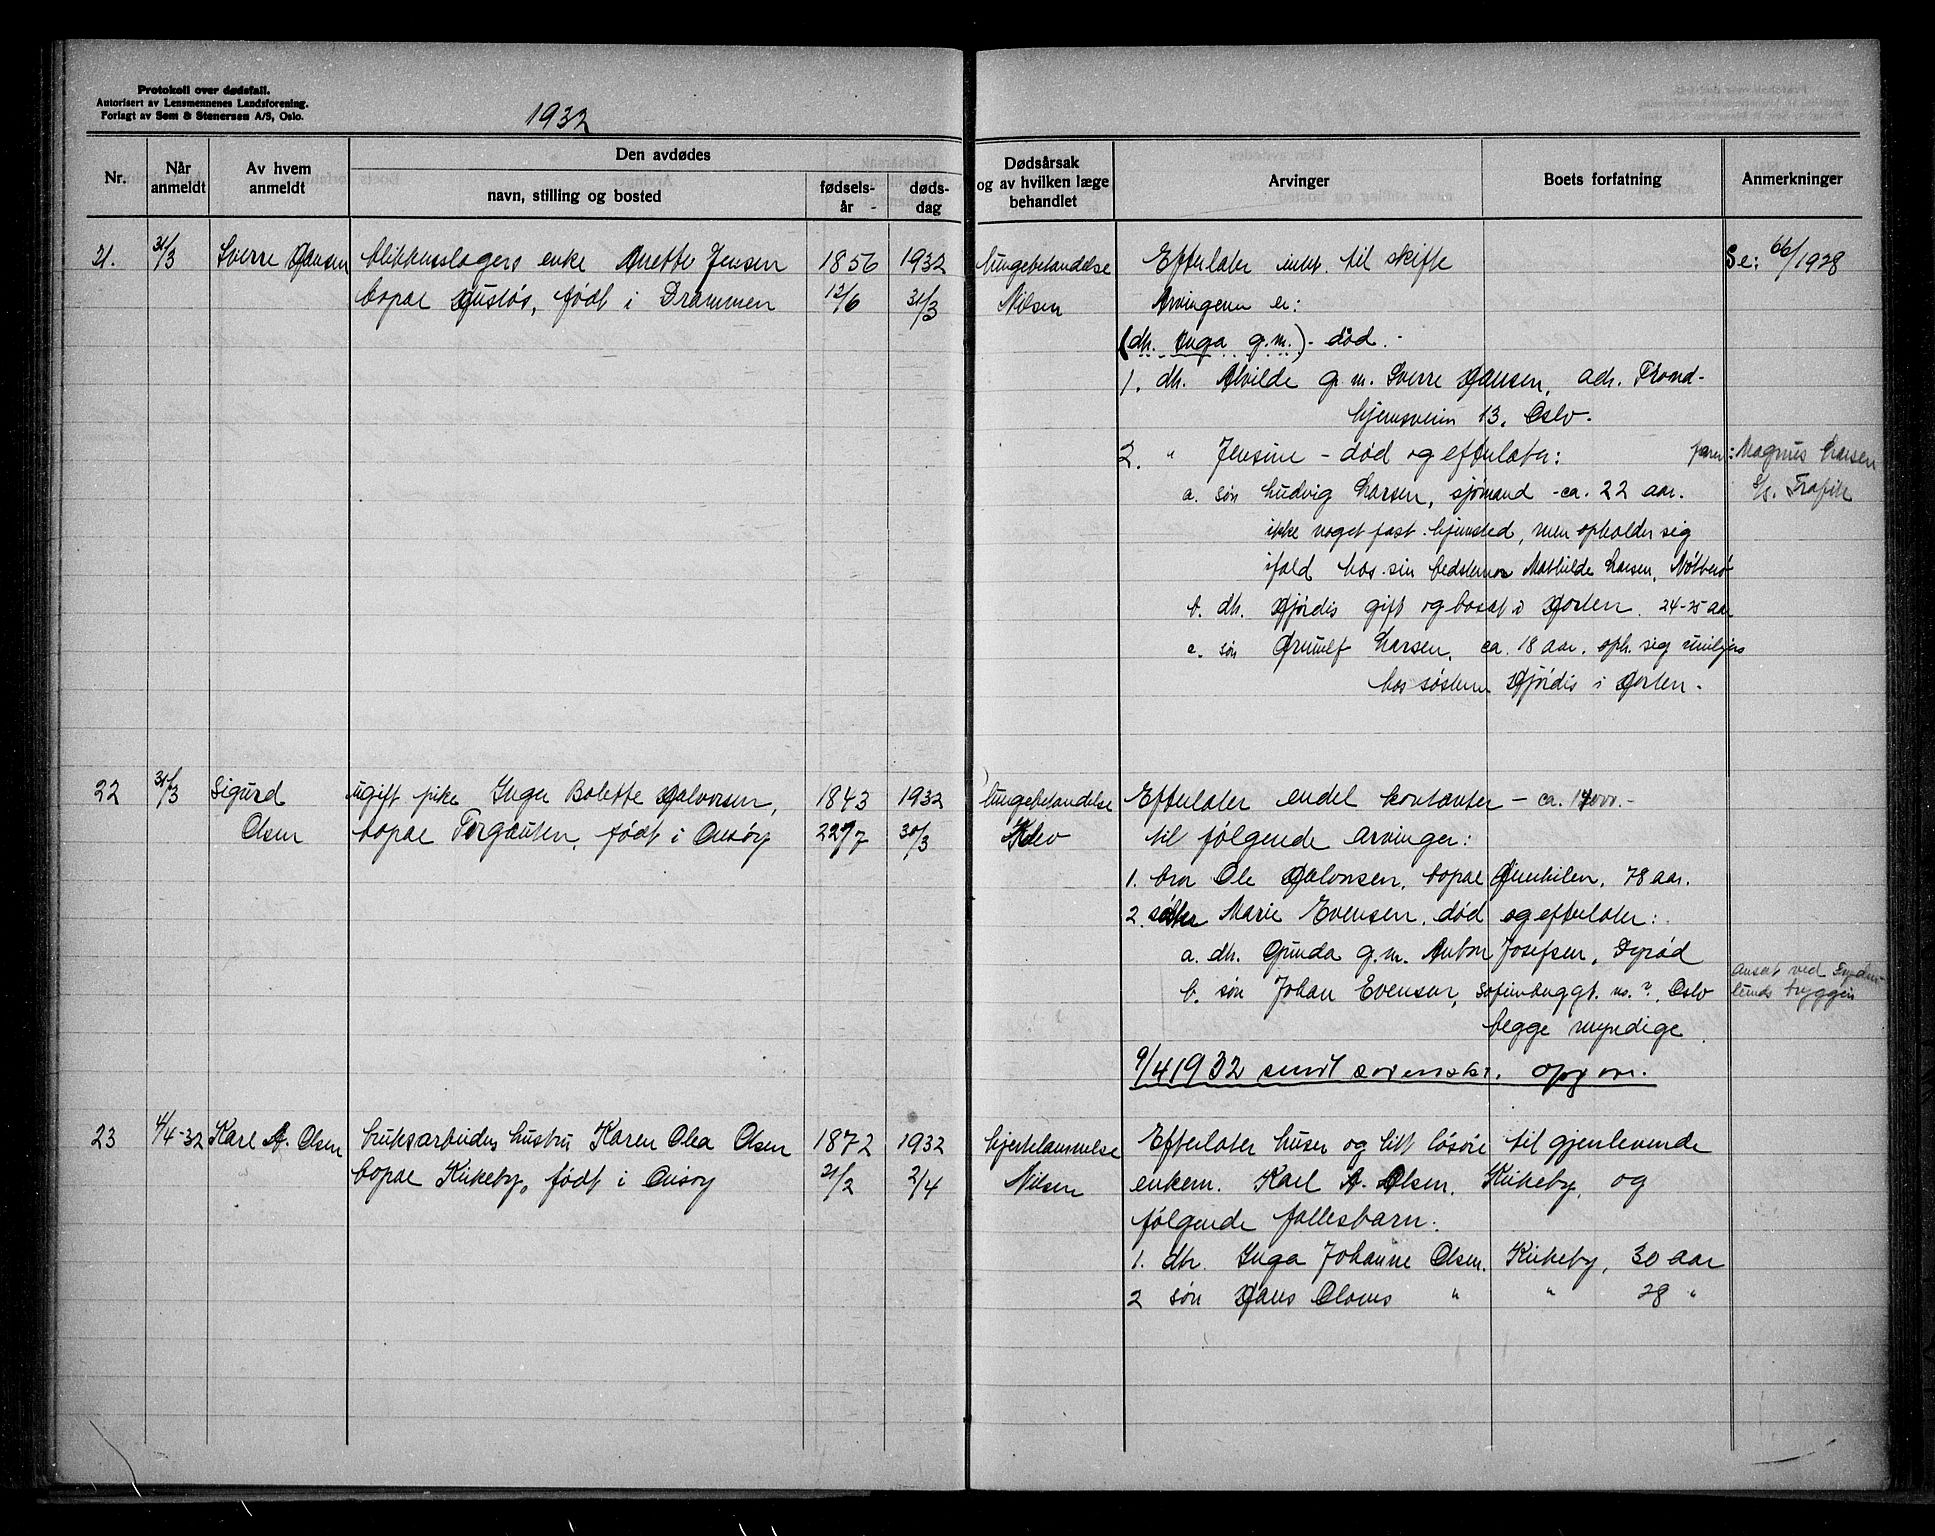 Protokoll over dødsfall.
Autorisert av Lensmennenes Landsforening.
Forlagt av Sem & Stenersen A/S, Oslo.
1932
Nr.
Når anmeldt
Av hvem anmeldt
Den avdødes
navn, stilling og bosted
fødsels-år
døds-dag
Dødsårsak og av hvilken læge behandlet
Arvinger
Boets forfatning
Anmerkninger
21. 31/3 Sverre Hansen blikkenslagers enke Anette Jensen 1856 1932 lungebetendelse Efterlater intet til skifte Se: 66/1928
bopæl født i Drammen 12/6 31/3 Nilsen Arvingene er:
(dtr. Inga g.m.) - død. -
1. dtr. Alvilde g.m. Sverre Hansen, adr. Trond-
hjemsveien 13, Oslo.
2. " Jensine - død og efterlater: faren: Magnus Larsen
a. søn Ludvig Larsen, sjømand - ca. 22 aar. S/S. Trafik
ikke noget fast hjemsted, men opholder sig
ifald hos sin bedstemor Mathilde Larsen, Nøtterø
b. dtr. Hjørdis gift og bosat i Horten. 24-25 aar
c. søn Ørnulf Larsen, ca. 18 aar, oph. sig
hos søsteren Hjørdis i Horten.
22 31/3 Sigurd ugift pike Inger Bolette Halvorsen, 1843 1932 lungebetændelse Efterlater endel kontanter - ca.
Olsen bopæl Torgauten, født i Onsøy 22/7 30/3 til følgende arvinger:
1. bror Ole Halvorsen, bopæl 78 aar.
2. søster Marie Evensen, død og efterlater:
a. dtr. Gunda g.m. Anton Josefsen, Dyrød
b. søn Johan Evensen, no. ?, Oslo ansat ved
begge myndige bryggeri
9/4 1932 sendt opgave.
23 4/4-32 Karl A. Olsen bruksarbeiders hustru Karen Olea Olsen 1872 1932 hjertelammelse Efterlater huser og litt løsøre til gjenlevende
bopæl Kirkeby, født i Onsøy 21/2 2/4 Nilsen enkem. Karl A. Olsen, Kirkeby, og
følgende fællesbarn:
1. dtr. Inga Johanne Olsen, Kirkeby, 30 aar
2 søn Hans Olavus " " 28 "